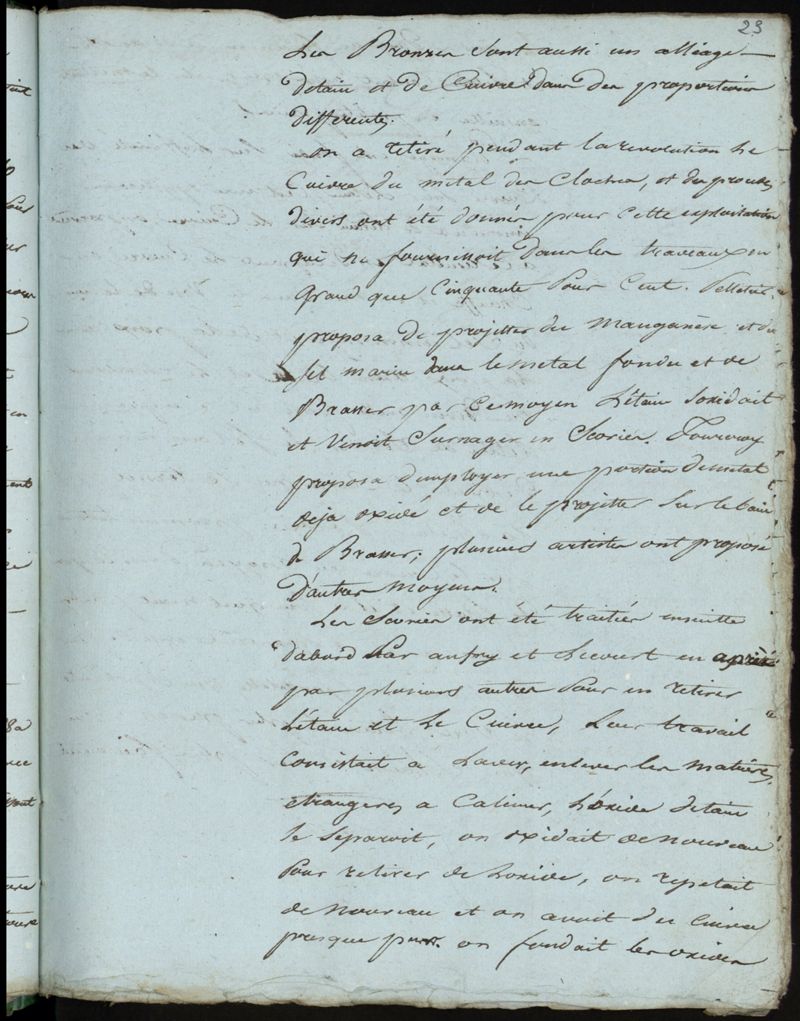 23
Les Bronzes sont aussi un alliage
detain et de Cuivre dans des proportions
differentes.
on a retiré pendant la revolution le
Cuivre du metal des Cloches, et des procedes
divers ont été donnés pour cette exploitation
qui ne fournissoit dans les travaux en
grand que Cinquante pour Cent. Pelletier
proposa de projetter du Manganèse et du
sel marin dans le metal fondu et de
Brasser par ce moyen L'étain soxidait
et Venoit Surnager en Scories. Fourcroy
proposa d'employer une portion de metal
deja oxidé et de le projetter sur le bain
de Brasser; plusieurs artistes ont proposé
D'autres Moyens.
Les Scories ont été traitées ensuitte
dabord Par aufry et Lecourt en après
par plusieurs autres Pour en retirer
L'étain et le Cuivre, Leur travail
Consistait a Laver, enlever les matières
etrangeres a Calciner, L'oxide detain
se separoit, on oxidait de nouveau
Pour retirer de Loxide, on repetait
de nouveau et on avoit du Cuivre
presque pur. on fondait les oxides